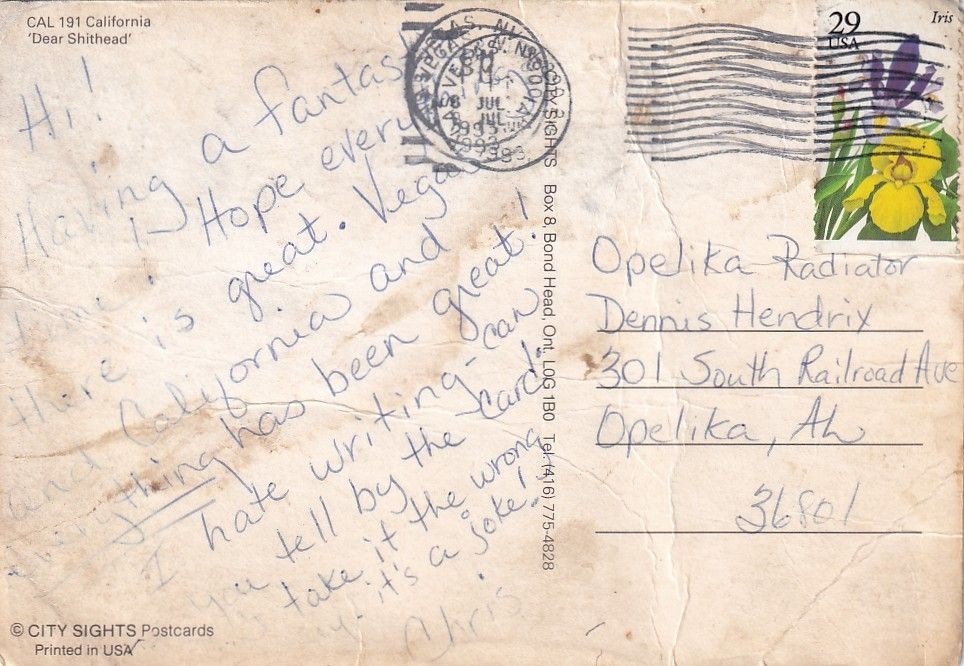 CAL 191 California
'Dear Shithead'
Hi!
Having a fantastic
time! Hope everything
there is great. Vegas
and California and
everything has been great!
I hate writing - can
you tell by the card.
take it the wrong
it's a joke!
Chris
© CITY SIGHTS Postcards
Printed in USA
CITY SIGHTS Box 8, Bond Head, Ont. L0G 1B0 Tel. (416) 775-4828
LAS VEGAS, NV
PM
08 JUL
1993
29
USA
Iris
Opelika Radiator
Dennis Hendrix
301 South Railroad Ave
Opelika, AL
36801